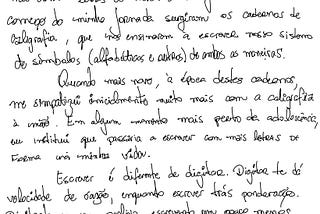 começo da minha jornada surgiram os cadernos de
caligrafia, que nos ensinaram a escrever nosso sistema
de símbolos (alfabéticos e outros) de as maneiras.
Quando mais novo, à época destes cadernos,
me simpatizei inicialmente muito mais com a caligrafia
à mão. Em algum momento mais perto da adolescência,
eu institui que passaria a escrever com mais letras de
forma na minha vida.
Escrever é diferente de digitar. Digitar te dá
velocidade de, enquanto escrever trás ponderação.